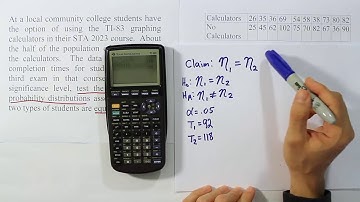 At a local community college students have
the option of using the TI-83 graphing
calculators in their STA 2023 course. About
half of the population
the calculators. The data
completion times for stude
third exam in that cours
significance level, test the
probability distributions asso
two types of students are equ
Calculators 26 35 36 69 54 58 38 73 80 82
No 25 45 62 102 75 70 82 67 36 90
Calculators
Claim: η₁ = η₂
H₀: η₁ = η₂
Hₐ: η₁ ≠ η₂
α = .05
T₁ = 92
T₂ = 118